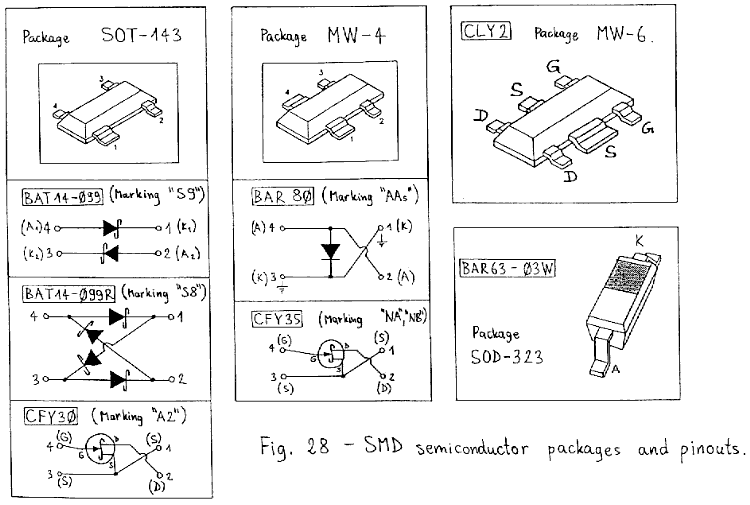 Package SOT-143
3
4
2
1
BAT 14-099 (Marking "S9")
(A1) 4 1 (K1)
(K2) 3 2 (A2)
BAT14-099R (Marking "S8")
4 1
3 2
CFY30 (Marking "A2")
(G) D (S)
4 G 1
S
3 2
(S) (D)
Package MW-4
3
4
2
1
BAR 80 (Marking "AAs")
(A) 4 1 (K)
(K) 3 2 (A)
CFY35 (Marking "NA", "NB")
(G) D (S)
4 G 1
S
3 2
(S) (D)
CLY2 Package MW-6.
G
S
D
G
S
D
K
BAR63-03W
Package
SOD-323
A
Fig. 28 - SMD semiconductor packages and pinouts.